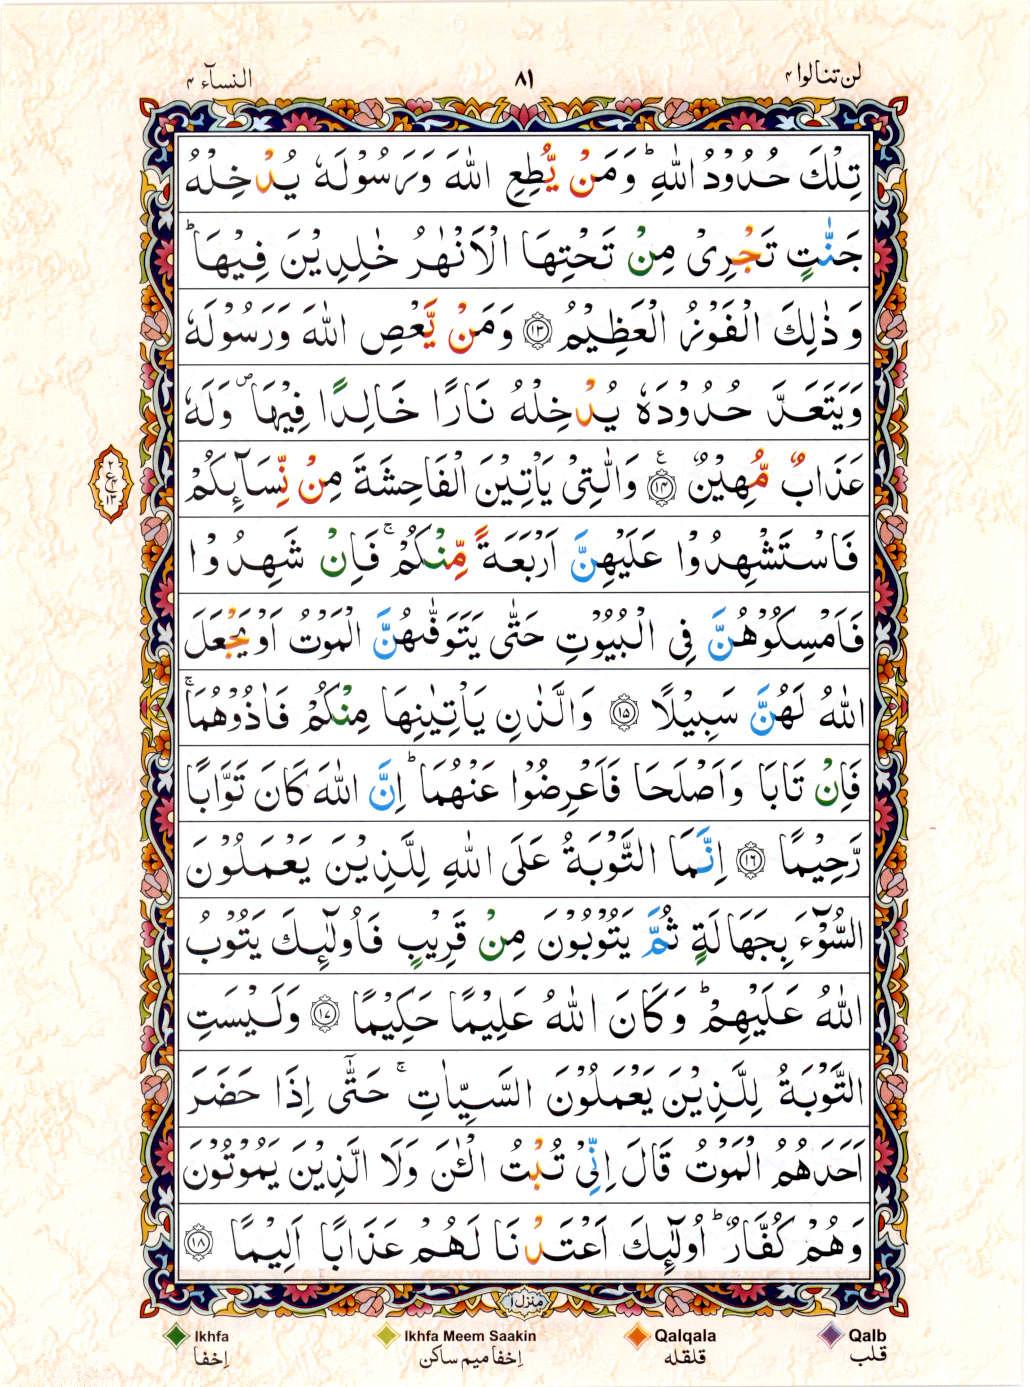 لن تنالوا ۴
۸۱
النسآء ۴
تِلْكَ حُدُوْدُ اللّٰهِ ؕ وَمَنْ يُّطِعِ اللّٰهَ وَرَسُوْلَهٗ يُدْخِلْهُ
جَنّٰتٍ تَجْرِىْ مِنْ تَحْتِهَا الْاَنْهٰرُ خٰلِدِيْنَ فِيْهَا ؕ
وَذٰلِكَ الْفَوْزُ الْعَظِيْمُ ﴿۱۳﴾ وَمَنْ يَّعْصِ اللّٰهَ وَرَسُوْلَهٗ
وَيَتَعَدَّ حُدُوْدَهٗ يُدْخِلْهُ نَارًا خَالِدًا فِيْهَا ۪ وَلَهٗ
عَذَابٌ مُّهِيْنٌ ﴿۱۴﴾ ع وَالّٰتِىْ يَاْتِيْنَ الْفَاحِشَةَ مِنْ نِّسَآئِكُمْ
فَاسْتَشْهِدُوْا عَلَيْهِنَّ اَرْبَعَةً مِّنْكُمْ ۚ فَاِنْ شَهِدُوْا
فَاَمْسِكُوْهُنَّ فِى الْبُيُوْتِ حَتّٰى يَتَوَفّٰىهُنَّ الْمَوْتُ اَوْ يَجْعَلَ
اللّٰهُ لَهُنَّ سَبِيْلًا ﴿۱۵﴾ وَالَّذٰنِ يَاْتِيٰنِهَا مِنْكُمْ فَاٰذُوْهُمَا ۚ
فَاِنْ تَابَا وَاَصْلَحَا فَاَعْرِضُوْا عَنْهُمَا ؕ اِنَّ اللّٰهَ كَانَ تَوَّابًا
رَّحِيْمًا ﴿۱۶﴾ اِنَّمَا التَّوْبَةُ عَلَى اللّٰهِ لِلَّذِيْنَ يَعْمَلُوْنَ
السُّوْٓءَ بِجَهَالَةٍ ثُمَّ يَتُوْبُوْنَ مِنْ قَرِيْبٍ فَاُولٰٓئِكَ يَتُوْبُ
اللّٰهُ عَلَيْهِمْ ؕ وَكَانَ اللّٰهُ عَلِيْمًا حَكِيْمًا ﴿۱۷﴾ وَلَيْسَتِ
التَّوْبَةُ لِلَّذِيْنَ يَعْمَلُوْنَ السَّيِّاٰتِ ۚ حَتّٰۤى اِذَا حَضَرَ
اَحَدَهُمُ الْمَوْتُ قَالَ اِنِّىْ تُبْتُ الْـٰٔنَ وَلَا الَّذِيْنَ يَمُوْتُوْنَ
وَهُمْ كُفَّارٌ ؕ اُولٰٓئِكَ اَعْتَدْنَا لَهُمْ عَذَابًا اَلِيْمًا ﴿۱۸﴾
۲
ع
۴
۱۳
منزل ۱
Ikhfa Ikhfa Meem Saakin Qalqala Qalb
اِخفا اِخفا میم ساکن قلقله قلب